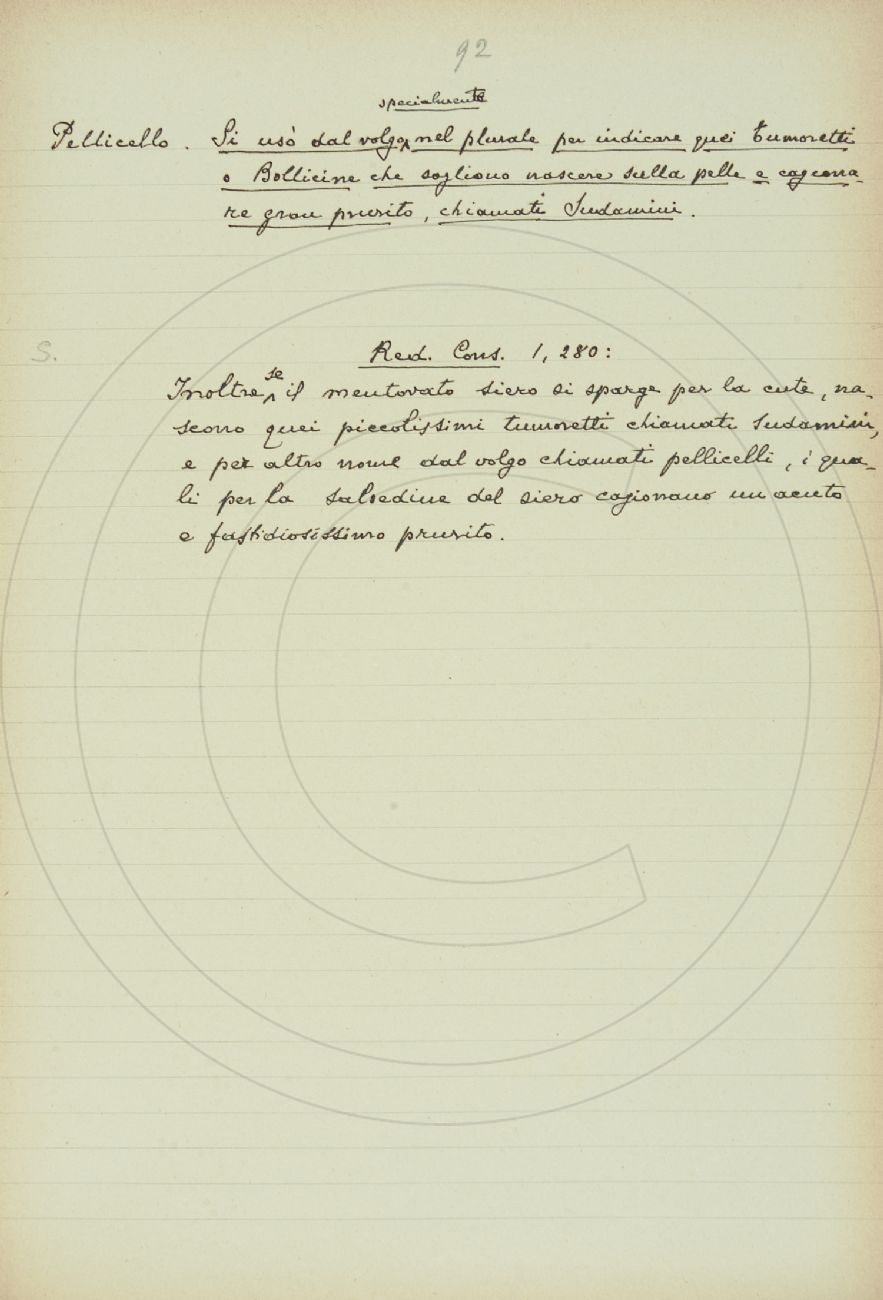 92
specialmente
Pellicello. Si usò dal volgo, nel plurale per indicare quei Tumoretti
o Bollicine che sogliono nascere sulla pelle e cagiona-
re gran prurito, chiamati Sudamini.
S.
Red. Cons. 1, 280:
Inoltre, se il mentovato siero si sparge per la cute, na-
scono quei piccolissimi tumoretti chiamati sudamini,
e per altro nome dal volgo chiamati pellicelli, i qua-
li per la salsedine del siero cagionano un acuto
e fastidiosissimo prurito.